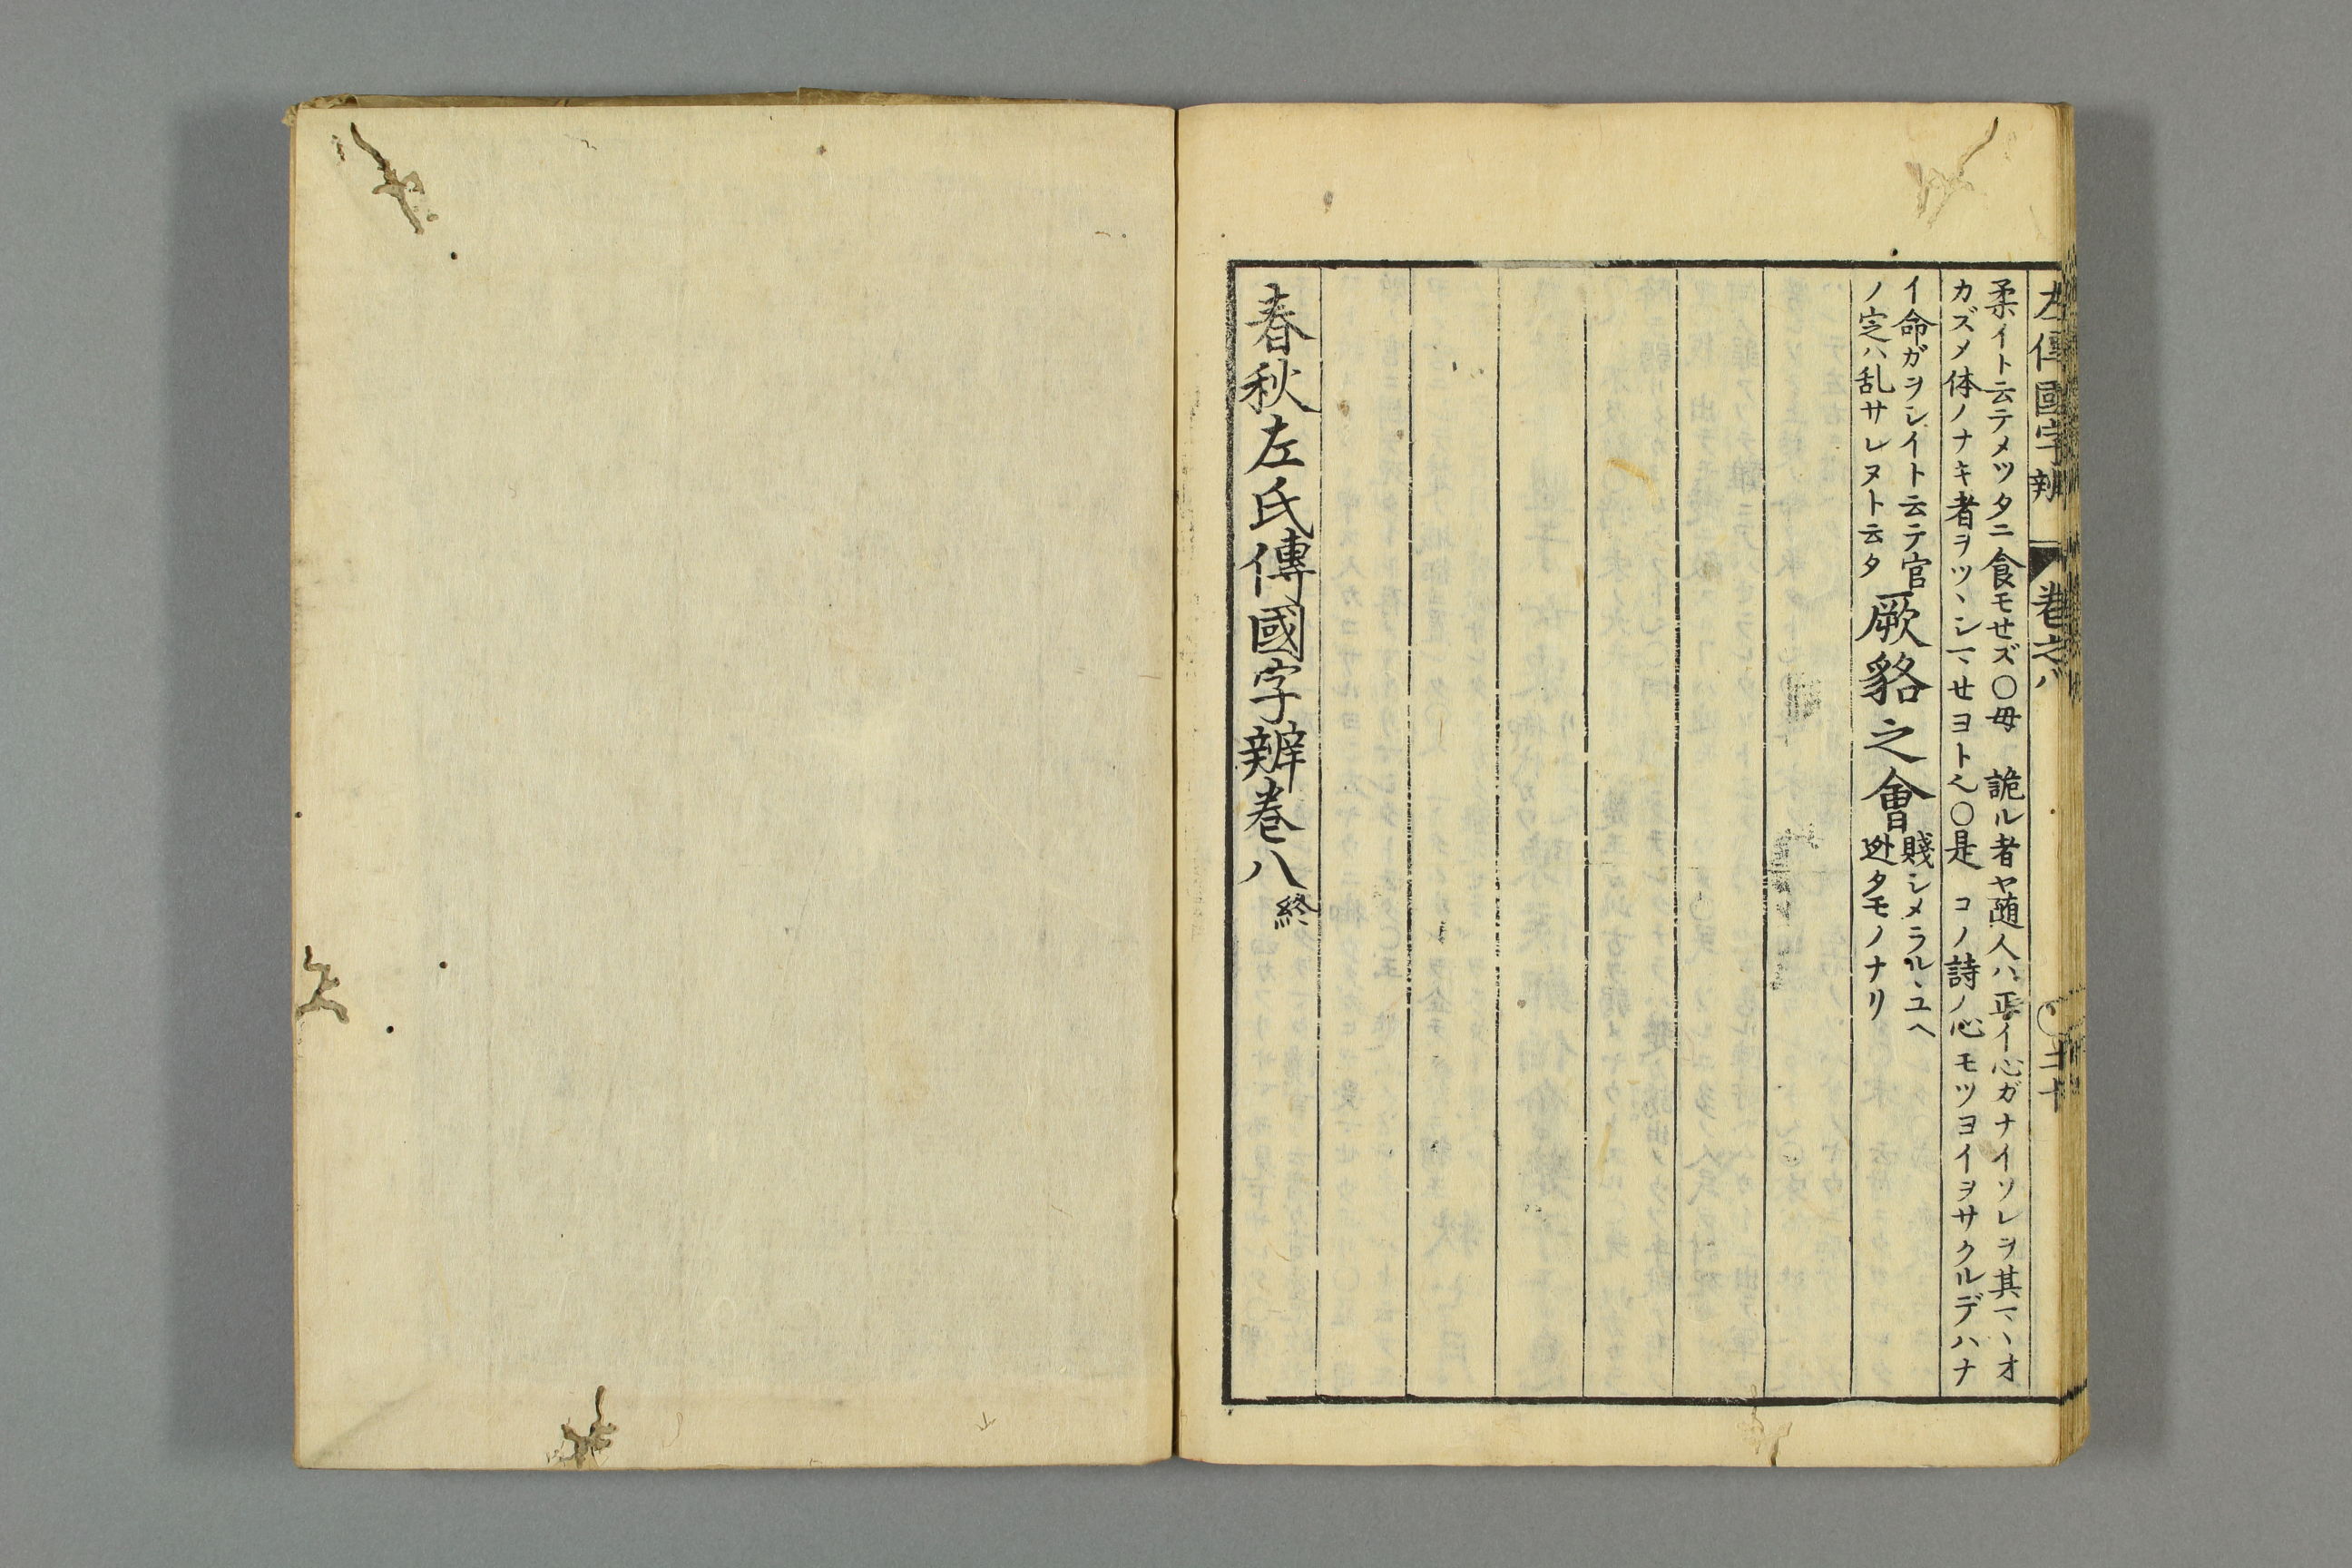 左傳國字辨 卷之八 二十
柔イト云テメツタニ食モせズ〇毋 詭ル者ヤ随人ハ正イ心ガナイソレヲ其マヽオ
カズメ体ノナキ者ヲツヽシマせヨト〇是 コノ詩ノ心モツヨイヲサクルデハナ
イ命ガヲシイト云テ官
ノ定ハ乱サレヌト云タ
厥貉之會
賤シメラルヽユヘ
迯タモノナリ
春秋左氏傳國字辨卷八終